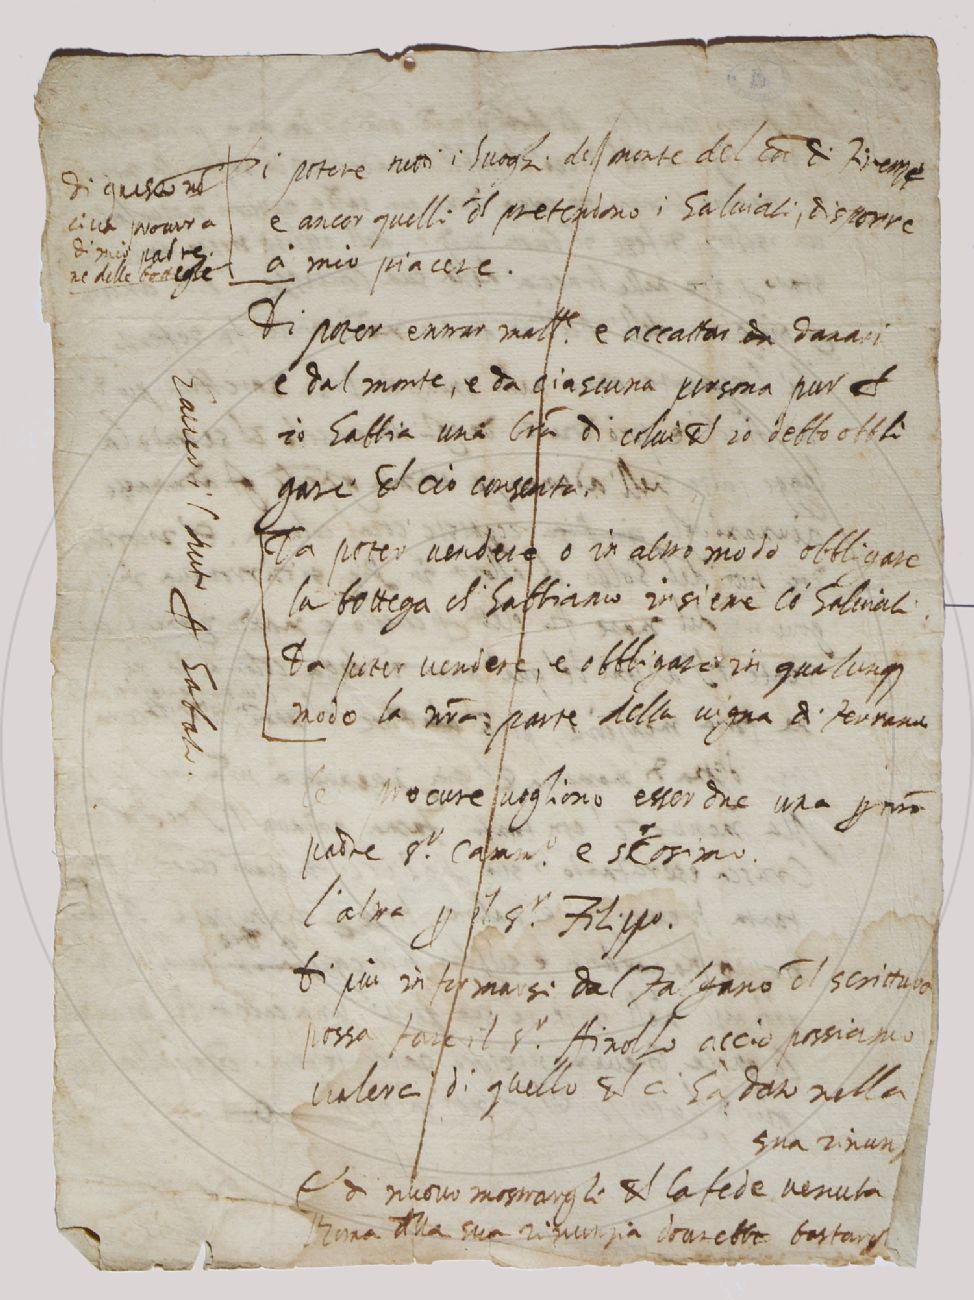 di questo nè
ci va procura
di mio padre
ne delle botteghe
Di potere tutti i luoghi del monte del cōe di Firenze
e ancor quelli ch pretendono i Salviati, disporre
à mio piacere.
Di poter entrar mall.re e accattar danari
e dal monte, e da ciascuna persona pur ch
io habbia una lr̄a di colui ch io debbo obbli
gare ch ciò consenta.
Da poter vendere o in altro modo obbligare
la bottega ch habbiamo insieme cō Salviati
Da poter vendere, e obbligare in qualunq
modo la nr̄a parte della vigna di
le procure vogliono esser due una p nr̄o
padre S.r Camm.o e S.r Cosimo.
l'altra p il S.r Filippo.
Di più informarsi dal ch scrittura
possa fare il S.r acciò possiamo
valerci di quello ch ci hà dato nella
sua rinun
E di nuovo mostrargli ch la fede venuta
Roma della sua rinunzia dovrebbe bastargl